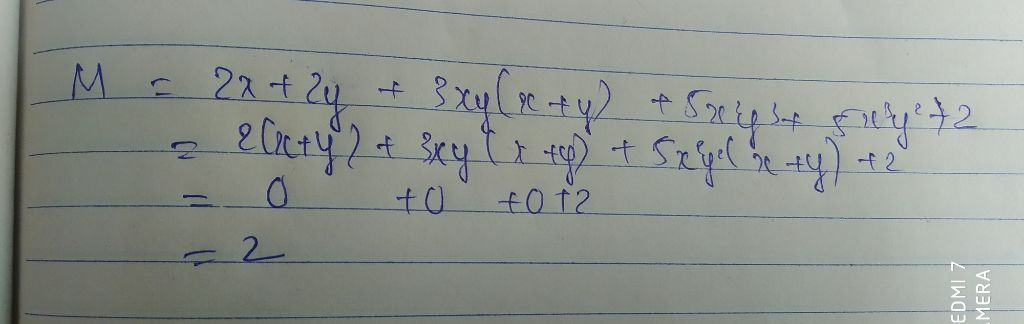 M = 2x + 2y + 3xy(x + y) + 5x²y³ + 5x³y² + 2
= 2(x+y) + 3xy(x + y) + 5x²y²(x + y) + 2
= 0 + 0 + 0 + 2
= 2
EDMI 7
AMERA